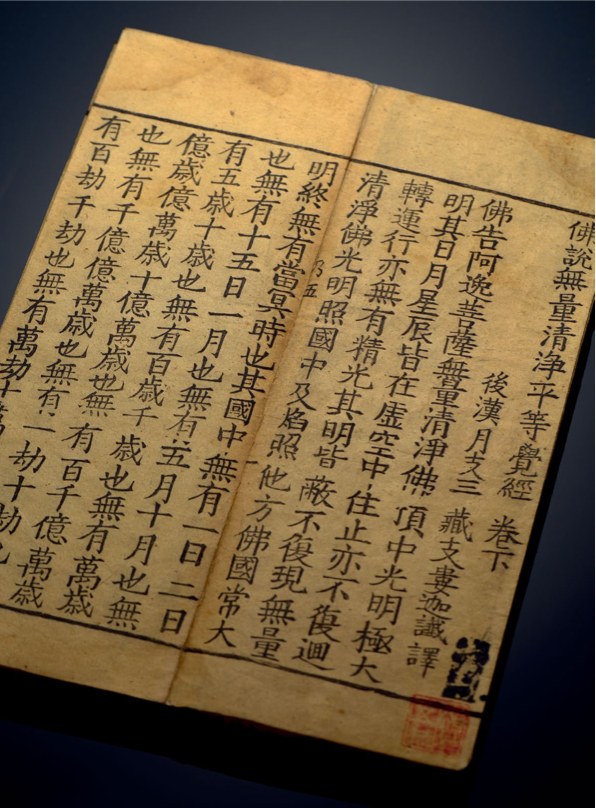 佛説無量清淨平等覺經 卷下
後漢月支三藏支婁迦讖譯
佛告阿逸菩薩無量清淨佛頂中光明極大
明其日月星辰皆在虛空中住止亦不復迴
轉運行亦無有精光其明皆蔽不復現無量
清淨佛光明照國中及焰照他方佛國常大
明終無有當冥時也其國中無有一日二日
也無有十五日一月也無有五月十月也無
有五歲十歲也無有百歲千歲也無有萬歲
億歲億萬歲十億萬歲也無有百千億萬歲
也無有千億億萬歲也無有一劫十劫也
有百劫千劫也無有萬劫十萬